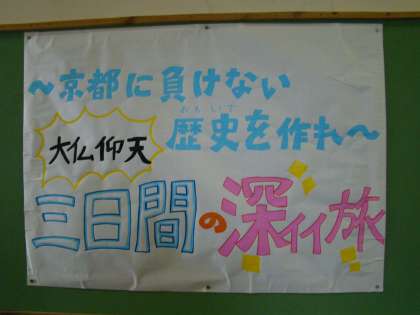 ～京都に負けない
おもいで
歴史を作れ～
大仏仰天
三日間の深イイ旅